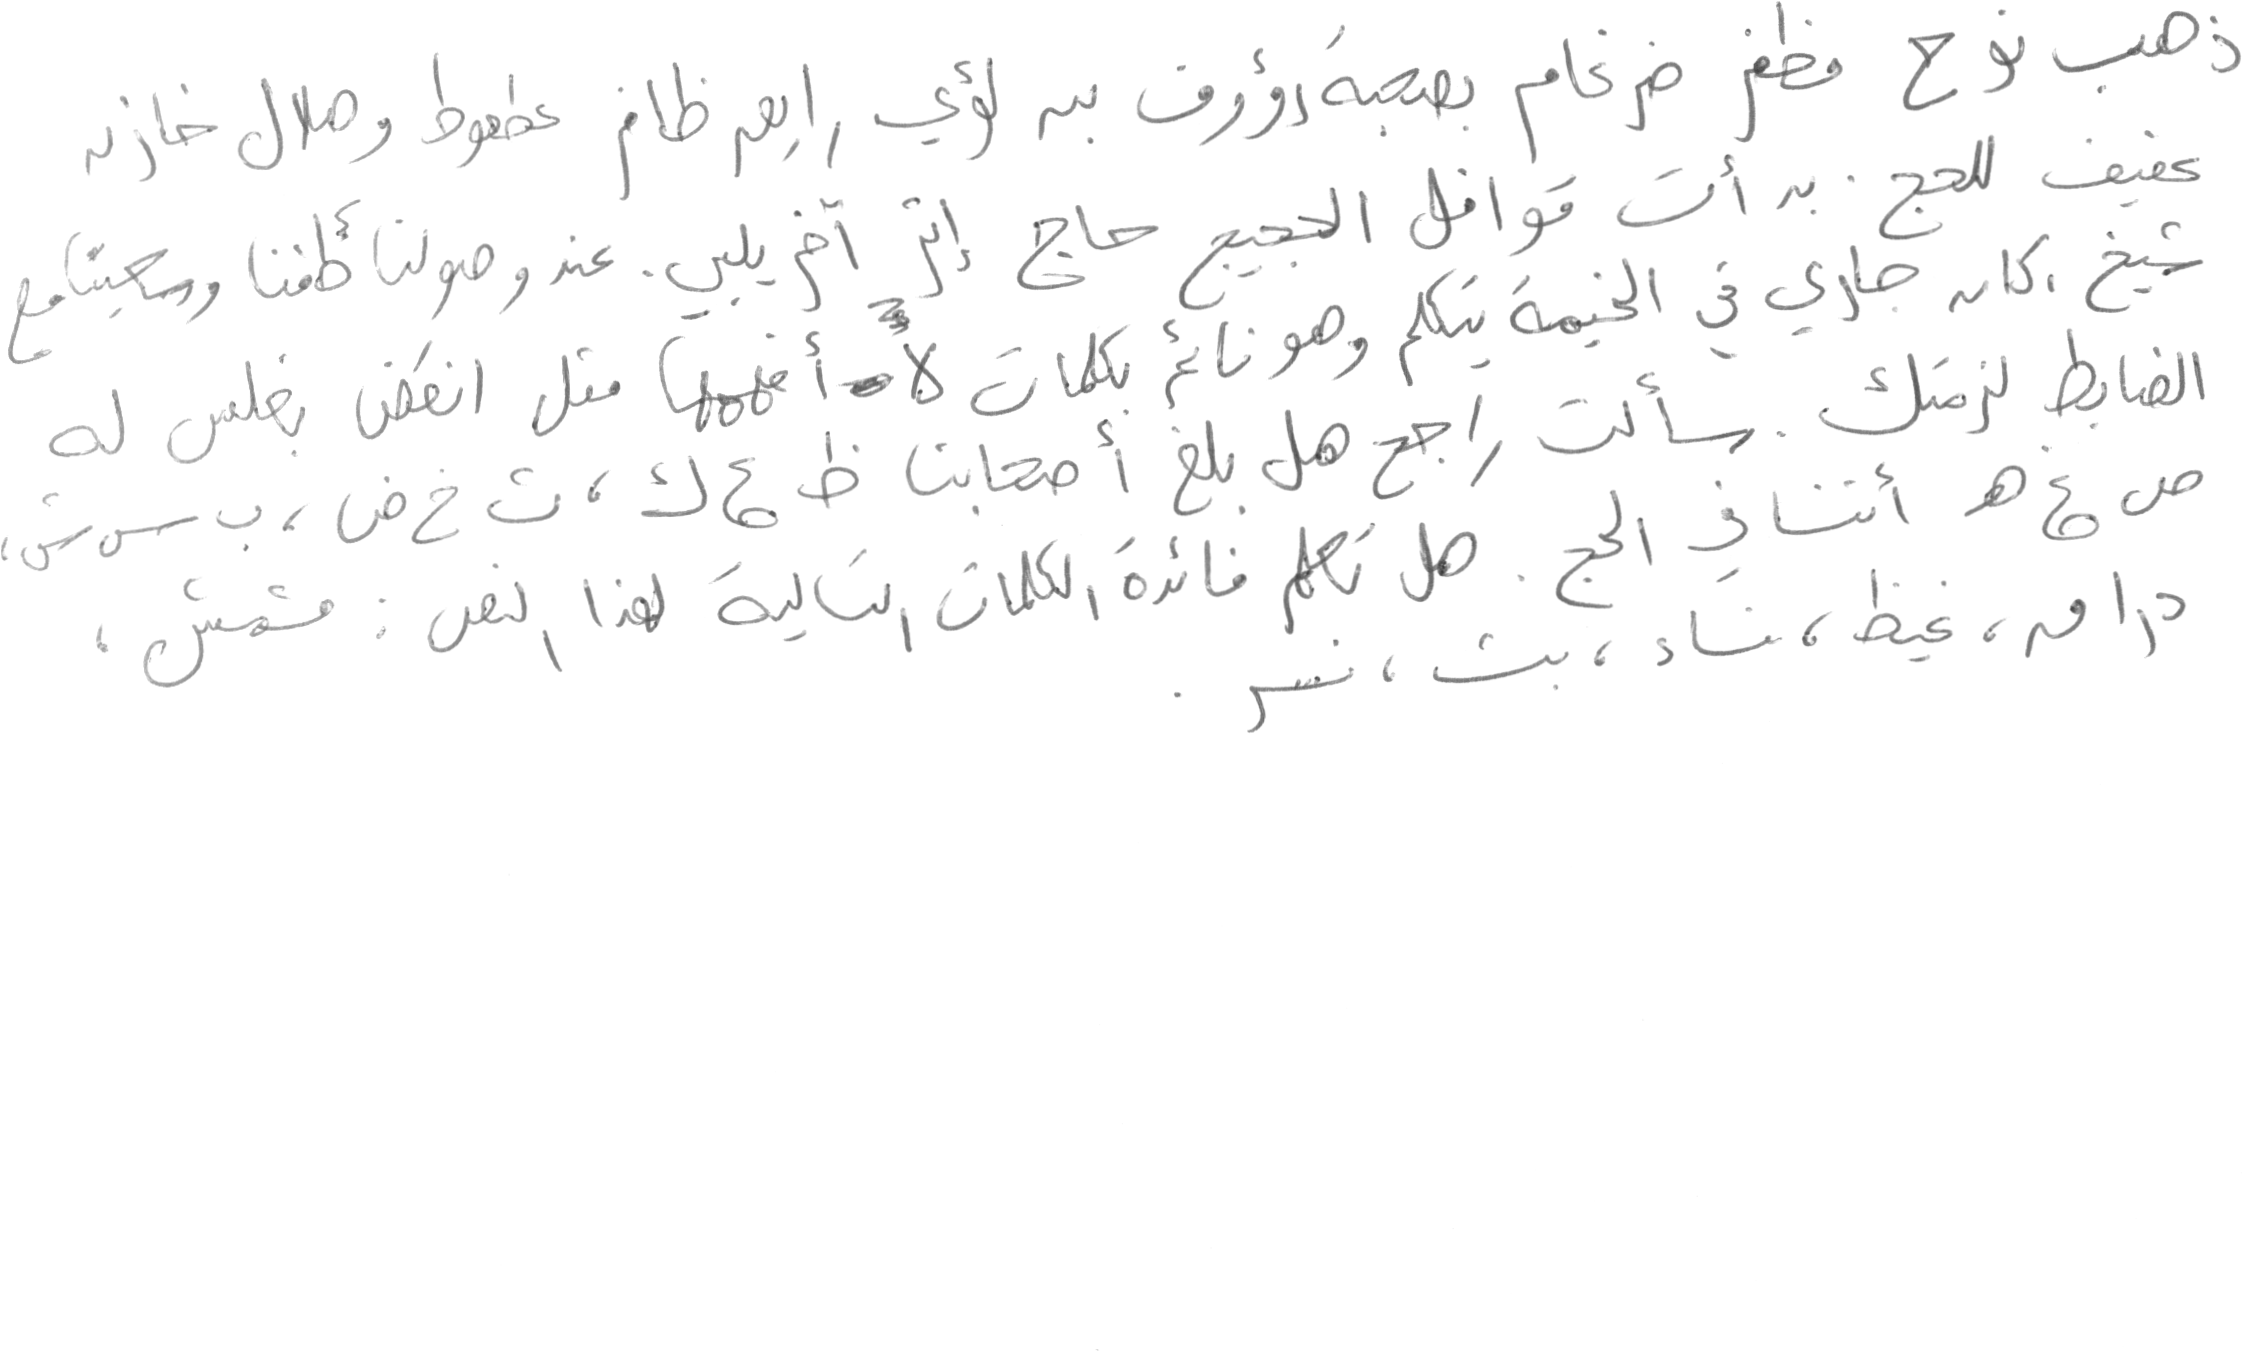 ذهب نوح مظفر ضرغام بصحبة رؤوف بن لؤي راهم ظافر عطعوط وهلال خازن
عفيف للحج . بدأت قوافل الحجيج حاج إثر آخر يلبي . عند وصولنا طفنا وسعينا مع
شيخ . كان جاري في الخيمة يتكلم وهو نائم بكلمات لا أفهمها مثل انغض بغلس له
الضابط لزمتك . سألت راجح هل بلغ أصحابنا ظ ع ك ، ث خ ض ، ب س ش ،
ص غ هـ أتتنا في الحج . هل تعلم فائدة الكلمات التالية لهذا النص : مشمش ،
دراق ، غيظ ، شاء ، بث ، نسر .